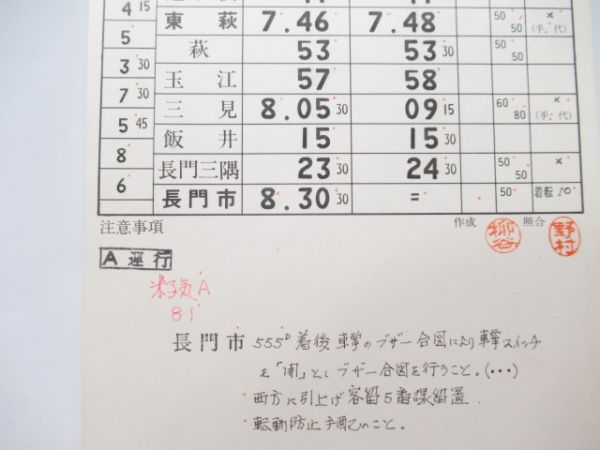 4 15
東萩 7.46 7.48 50 50 × (手.代)
5
萩 53 53 30 50 50
3 30
玉江 57 58
7 30
三見 8.05 30 09 15 60 80 × (手.代)
5 45
飯井 15 15 30
8
長門三隅 23 30 24 30 50 50 ×
6
長門市 8.30 30 = 50 着転20
注意事項 作成 柳谷 照合 野村
A 運行
米子気A
81
長門市 555D 着後 車掌のブザー合図により車掌スイッチ
を「閉」としブザー合図を行うこと。(・・・)
・西方に引上げ客留5番線留置.
・転動防止手配のこと。